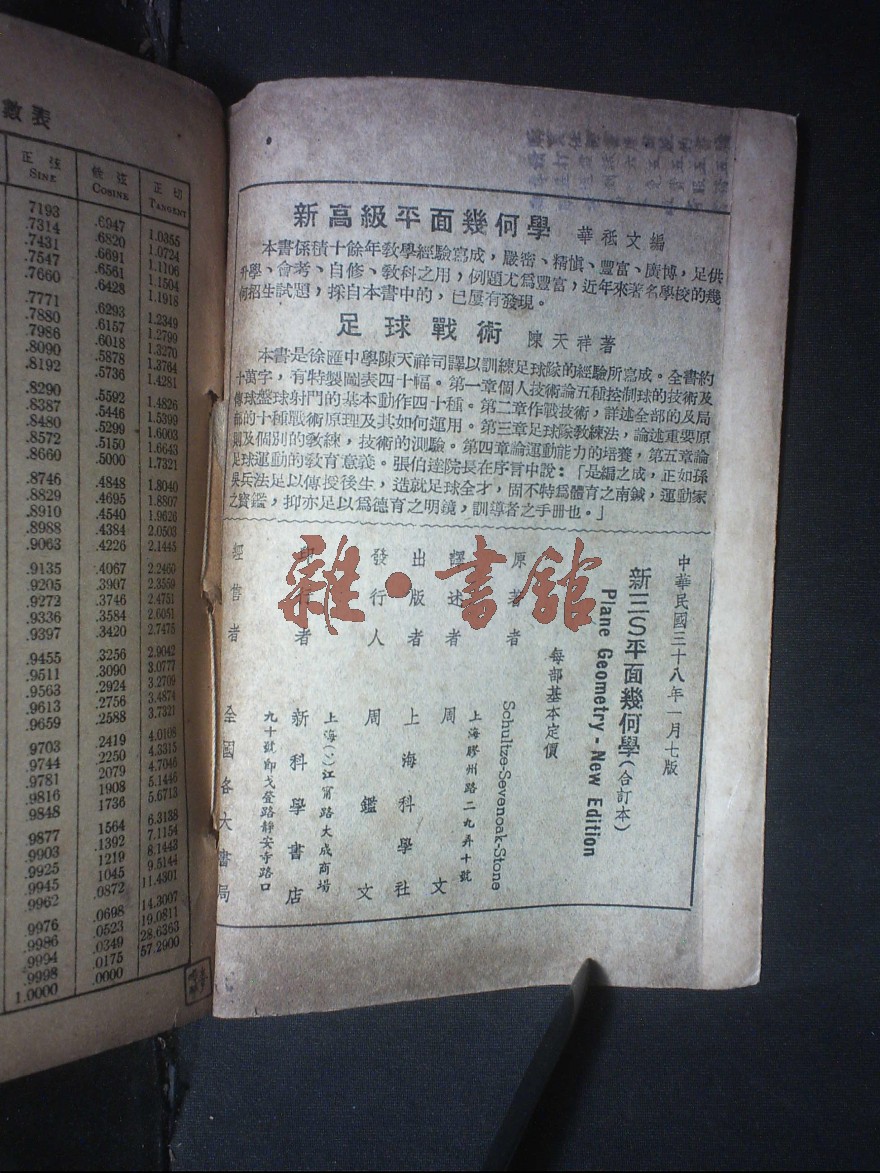 數表
正弦 餘弦 正切
SINE COSINE TANGENT
7193 .6947 1.0355
7314 .6820 1.0724
.7431 .6691 1.1106
.7547 .6561 1.1504
.7660 .6428 1.1918
.7771 .6293 1.2349
.7880 .6157 1.2799
.7986 .6018 1.3270
.8090 .5878 1.3764
.8192 .5736 1.4281
.8290 .5592 1.4826
.8387 .5446 1.5399
.8480 .5299 1.6003
.8572 .5150 1.6643
.8660 .5000 1.7321
.8746 .4848 1.8040
.8829 .4695 1.8807
.8910 .4540 1.9626
.8988 .4384 2.0503
.9063 .4226 2.1445
.9135 .4067 2.2460
.9205 .3907 2.3559
.9272 .3746 2.4751
.9336 .3584 2.6051
.9397 .3420 2.7475
.9455 .3256 2.9042
.9511 .3090 3.0777
.9563 .2924 3.2709
.9613 .2756 3.4874
.9659 .2588 3.7321
9703 .2419 4.0108
.9744 2250 4.3315
.9781 2079 4.7046
.9816 1908 5.1446
9848 1736 5.6713
.9877 1564 6.3138
.9903 .1392 7.1154
.9925 1219 8.1443
.9945 1045 9.5144
.9962 .0872 11.4301
.9976 .0698 14.3007
.9986 .0523 19.0811
.9994 .0349 28.6363
.9998 .0175 57.2900
1.0000 .0000
新高級平面幾何學 華祗文編
本書係積十餘年敎學經驗寫成，嚴密、精愼、豐富、廣博，足供
升學、會考、自修、敎科之用，例題尤爲豐富，近年來著名學校的幾
何招生試題，採自本書中的，已屢有發現。
足球戰術 陳天祥著
本書是徐匯中學陳天祥司譯以訓練足球隊的經驗所寫成。全書約
十萬字，有特製圖表四十幅。第一章個人技術論五種控制球的技術及
傳球盤球射門的基本動作四十種。第二章作戰技術，詳述全部的及局
部的十種戰術原理及其如何運用。第三章足球隊敎練法，論述重要原
則及個別的敎練，技術的測驗。第四章論運動能力的培養，第五章論
足球運動的敎育意義。張伯達院長在序言中說：「是編之成，正如孫
吳兵法足以傳授後生，造就足球全才，固不特爲體育之南鍼，運動家
之寶鑑，抑亦足以爲德育之明鏡，訓導者之手册也。」
中華民國三十八年一月七版
新三S平面幾何學(合訂本)
Plane Geometry - New Edition
每部基本定價
原著者 Schultze-Sevenoak-Stone
譯述者 周文
上海膠州路二九弄十號
出版者 上海科學社
發行人 周鑑文
上海(〻)江甯路大成商場
者 新科學書店
九十號卽戈登路靜安寺路口
經售者 全國各大書局
雜·書館